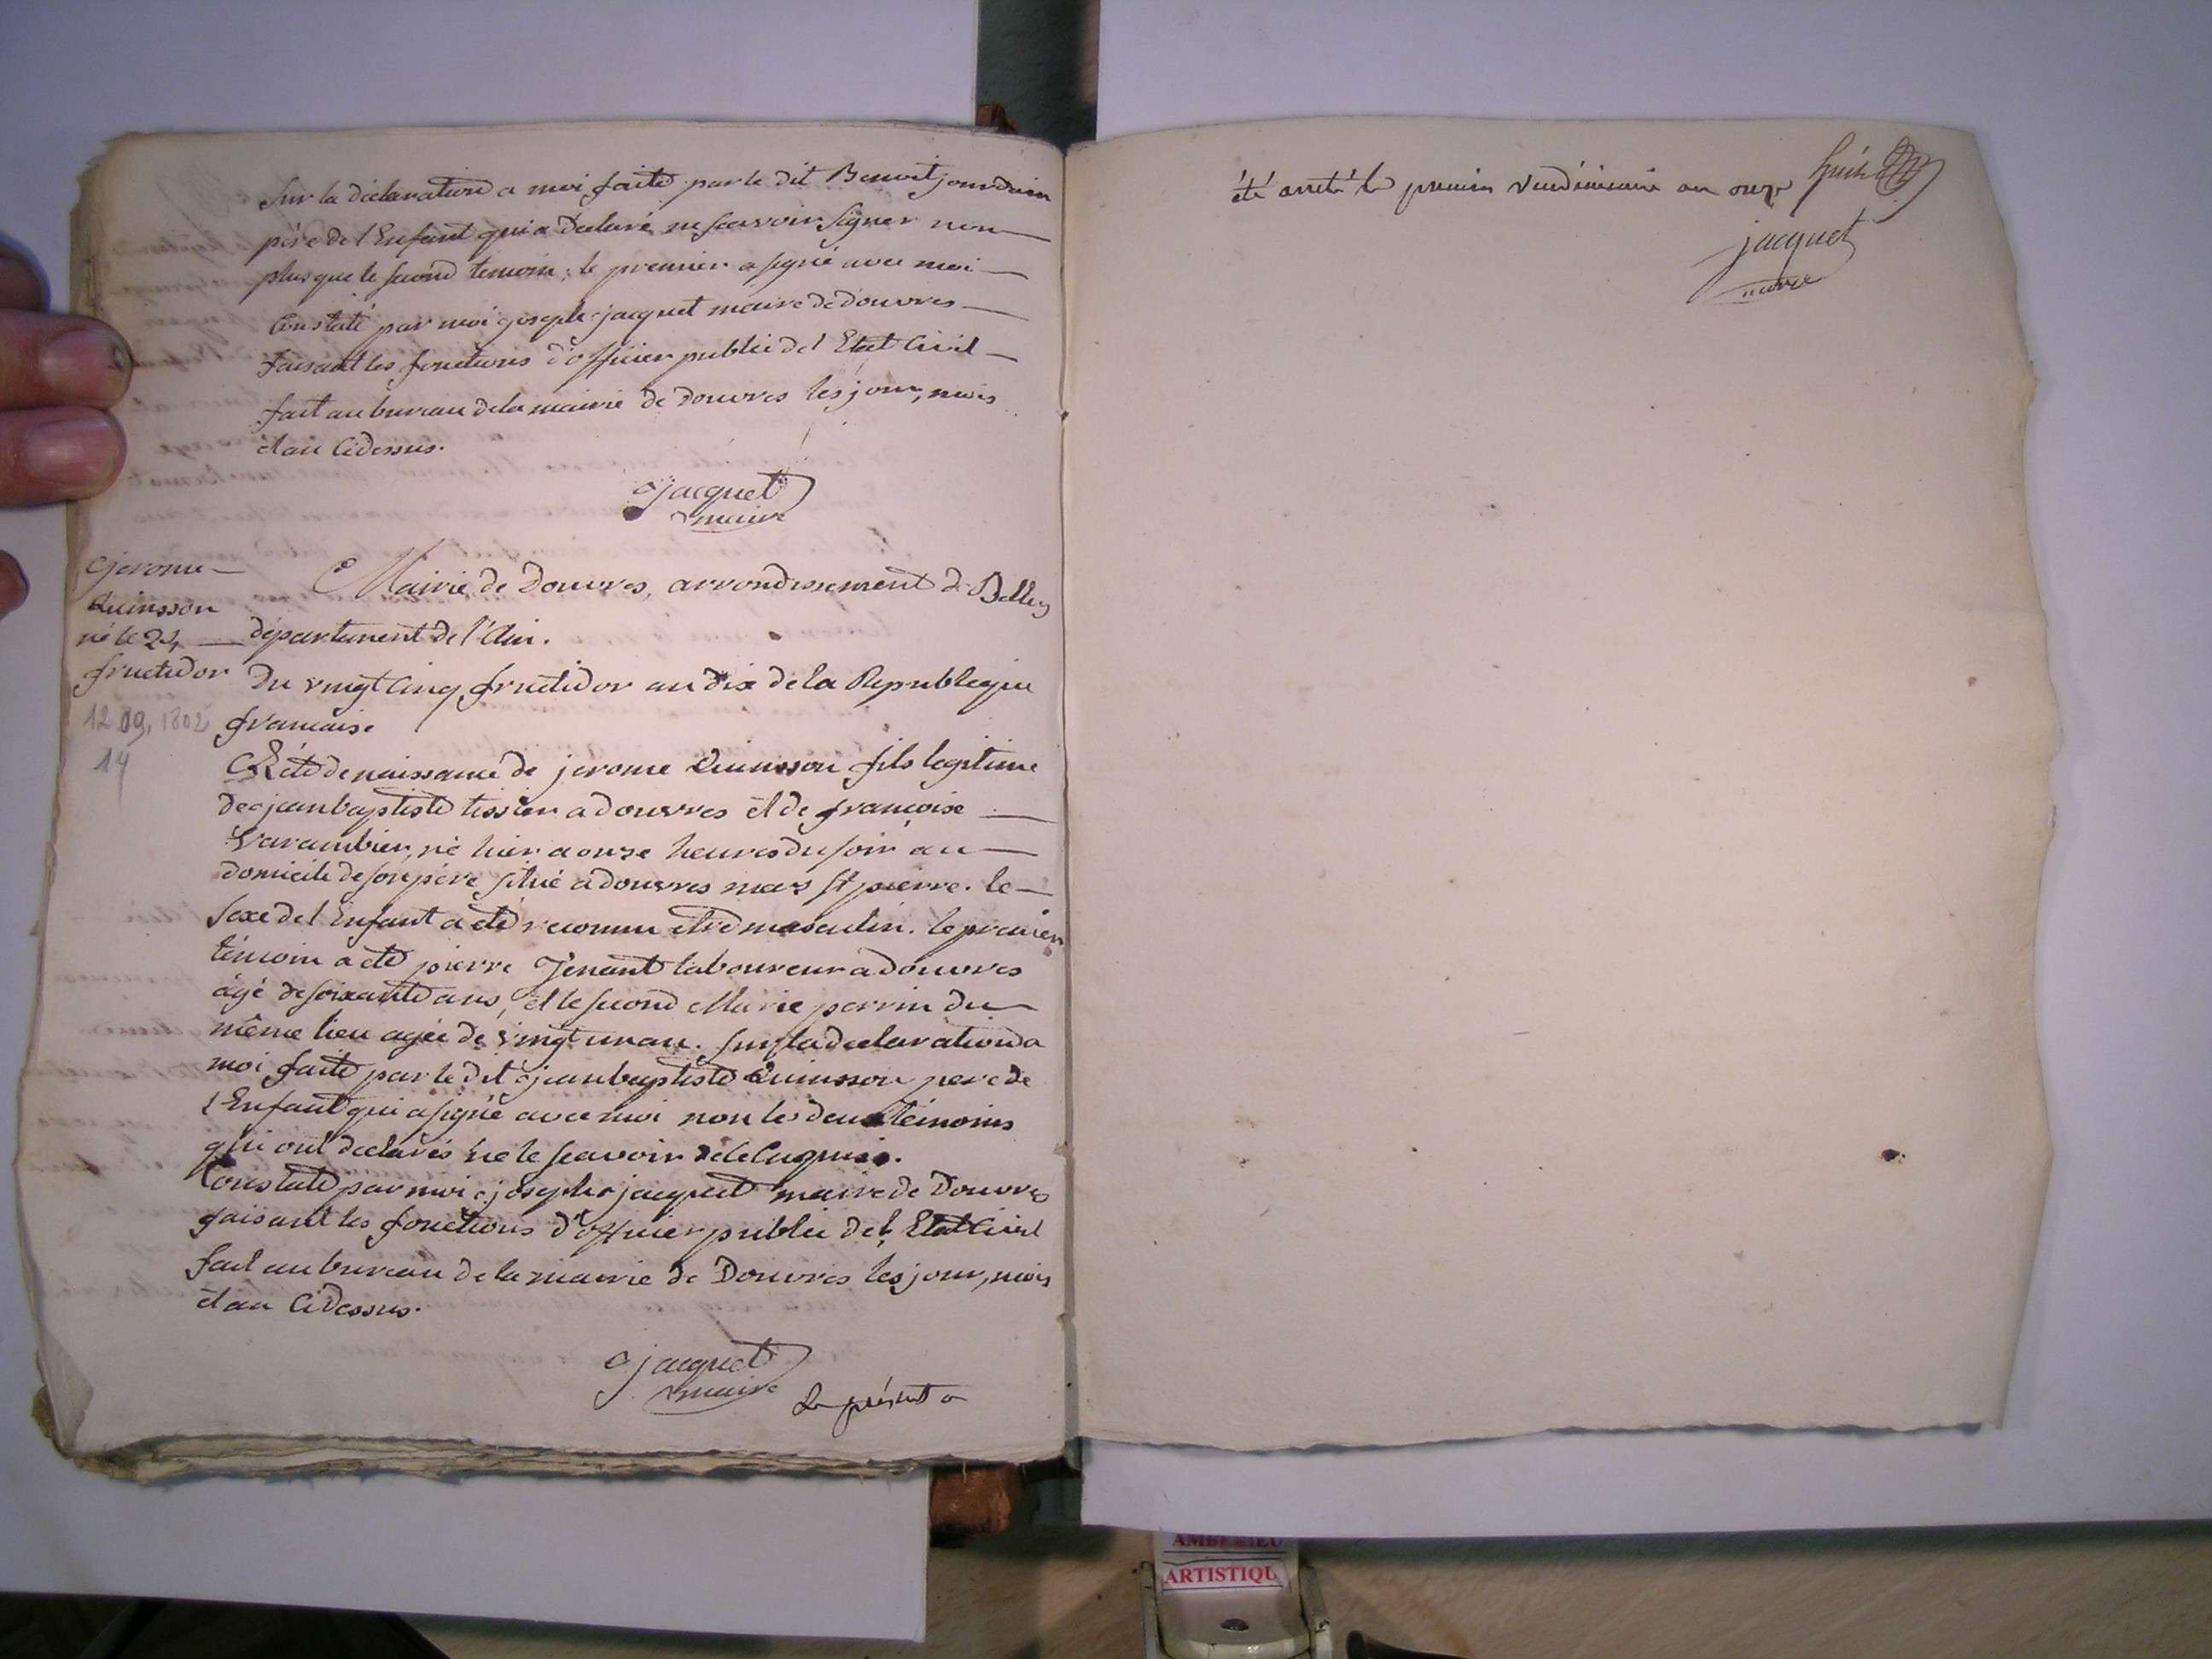 Sur la déclaration a moi faite par le dit Benoit jourdain
père de l'Enfant qui a Declaré ne scavoir signer non
plus que le second temoin; le premier a signé avec moi
Constaté par moi joseph jacquet maire de douvres
faisant les fonctions d'officier public de l'Etat Civil
fait au bureau de la mairie de douvres les jour, mois
et an Cidessus.
jacquet
maire
jerome
Quinsson
né le 24
fructidor
12 09, 1802
14
Mairie de Douvres, arrondissement de Belley
département de l'Ain.
Du vingt Cinq fructidor an dix de la Republique
francaise
Acte de naissance de jerome Quinsson fils legitime
de jean baptiste tissier a douvres et de françoise
Varambier, né hier a onze heures du soir au
domicile de son père situé a douvres mas St pierre. le
sexe de l'Enfant a été reconnu etre masculin. le premier
témoin a été pierre laboureur a douvres
âgé de soixante ans, et le second Marie perrin du
même lieu agée de vingt un an. sur la declaration a
moi faite par le dit jean baptiste Quinsson pere de
l'Enfant qui a signé avec moi non les deux témoins
qui ont declarés ne le scavoir de ce enquis.
Constaté par moi joseph jacquet maire de Douvres
faisant les fonctions d'officier public de l'Etat Civil
fait au bureau de la mairie de Douvres les jour, mois
et an Cidessus.
jacquet
maire
Le présent a
été arreté le premier vendémiaire an onze
jacquet
maire
AMBERIEU
ARTISTIQU